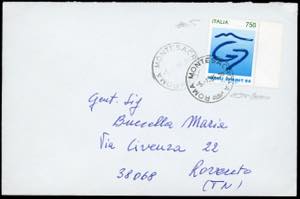 ITALIA 750
ROMA MONTESACRO
ROMA MONTESACRO
Gent. Sig
Buccella Maria
Via Livenza 22
38068 Rovereto
(TN)